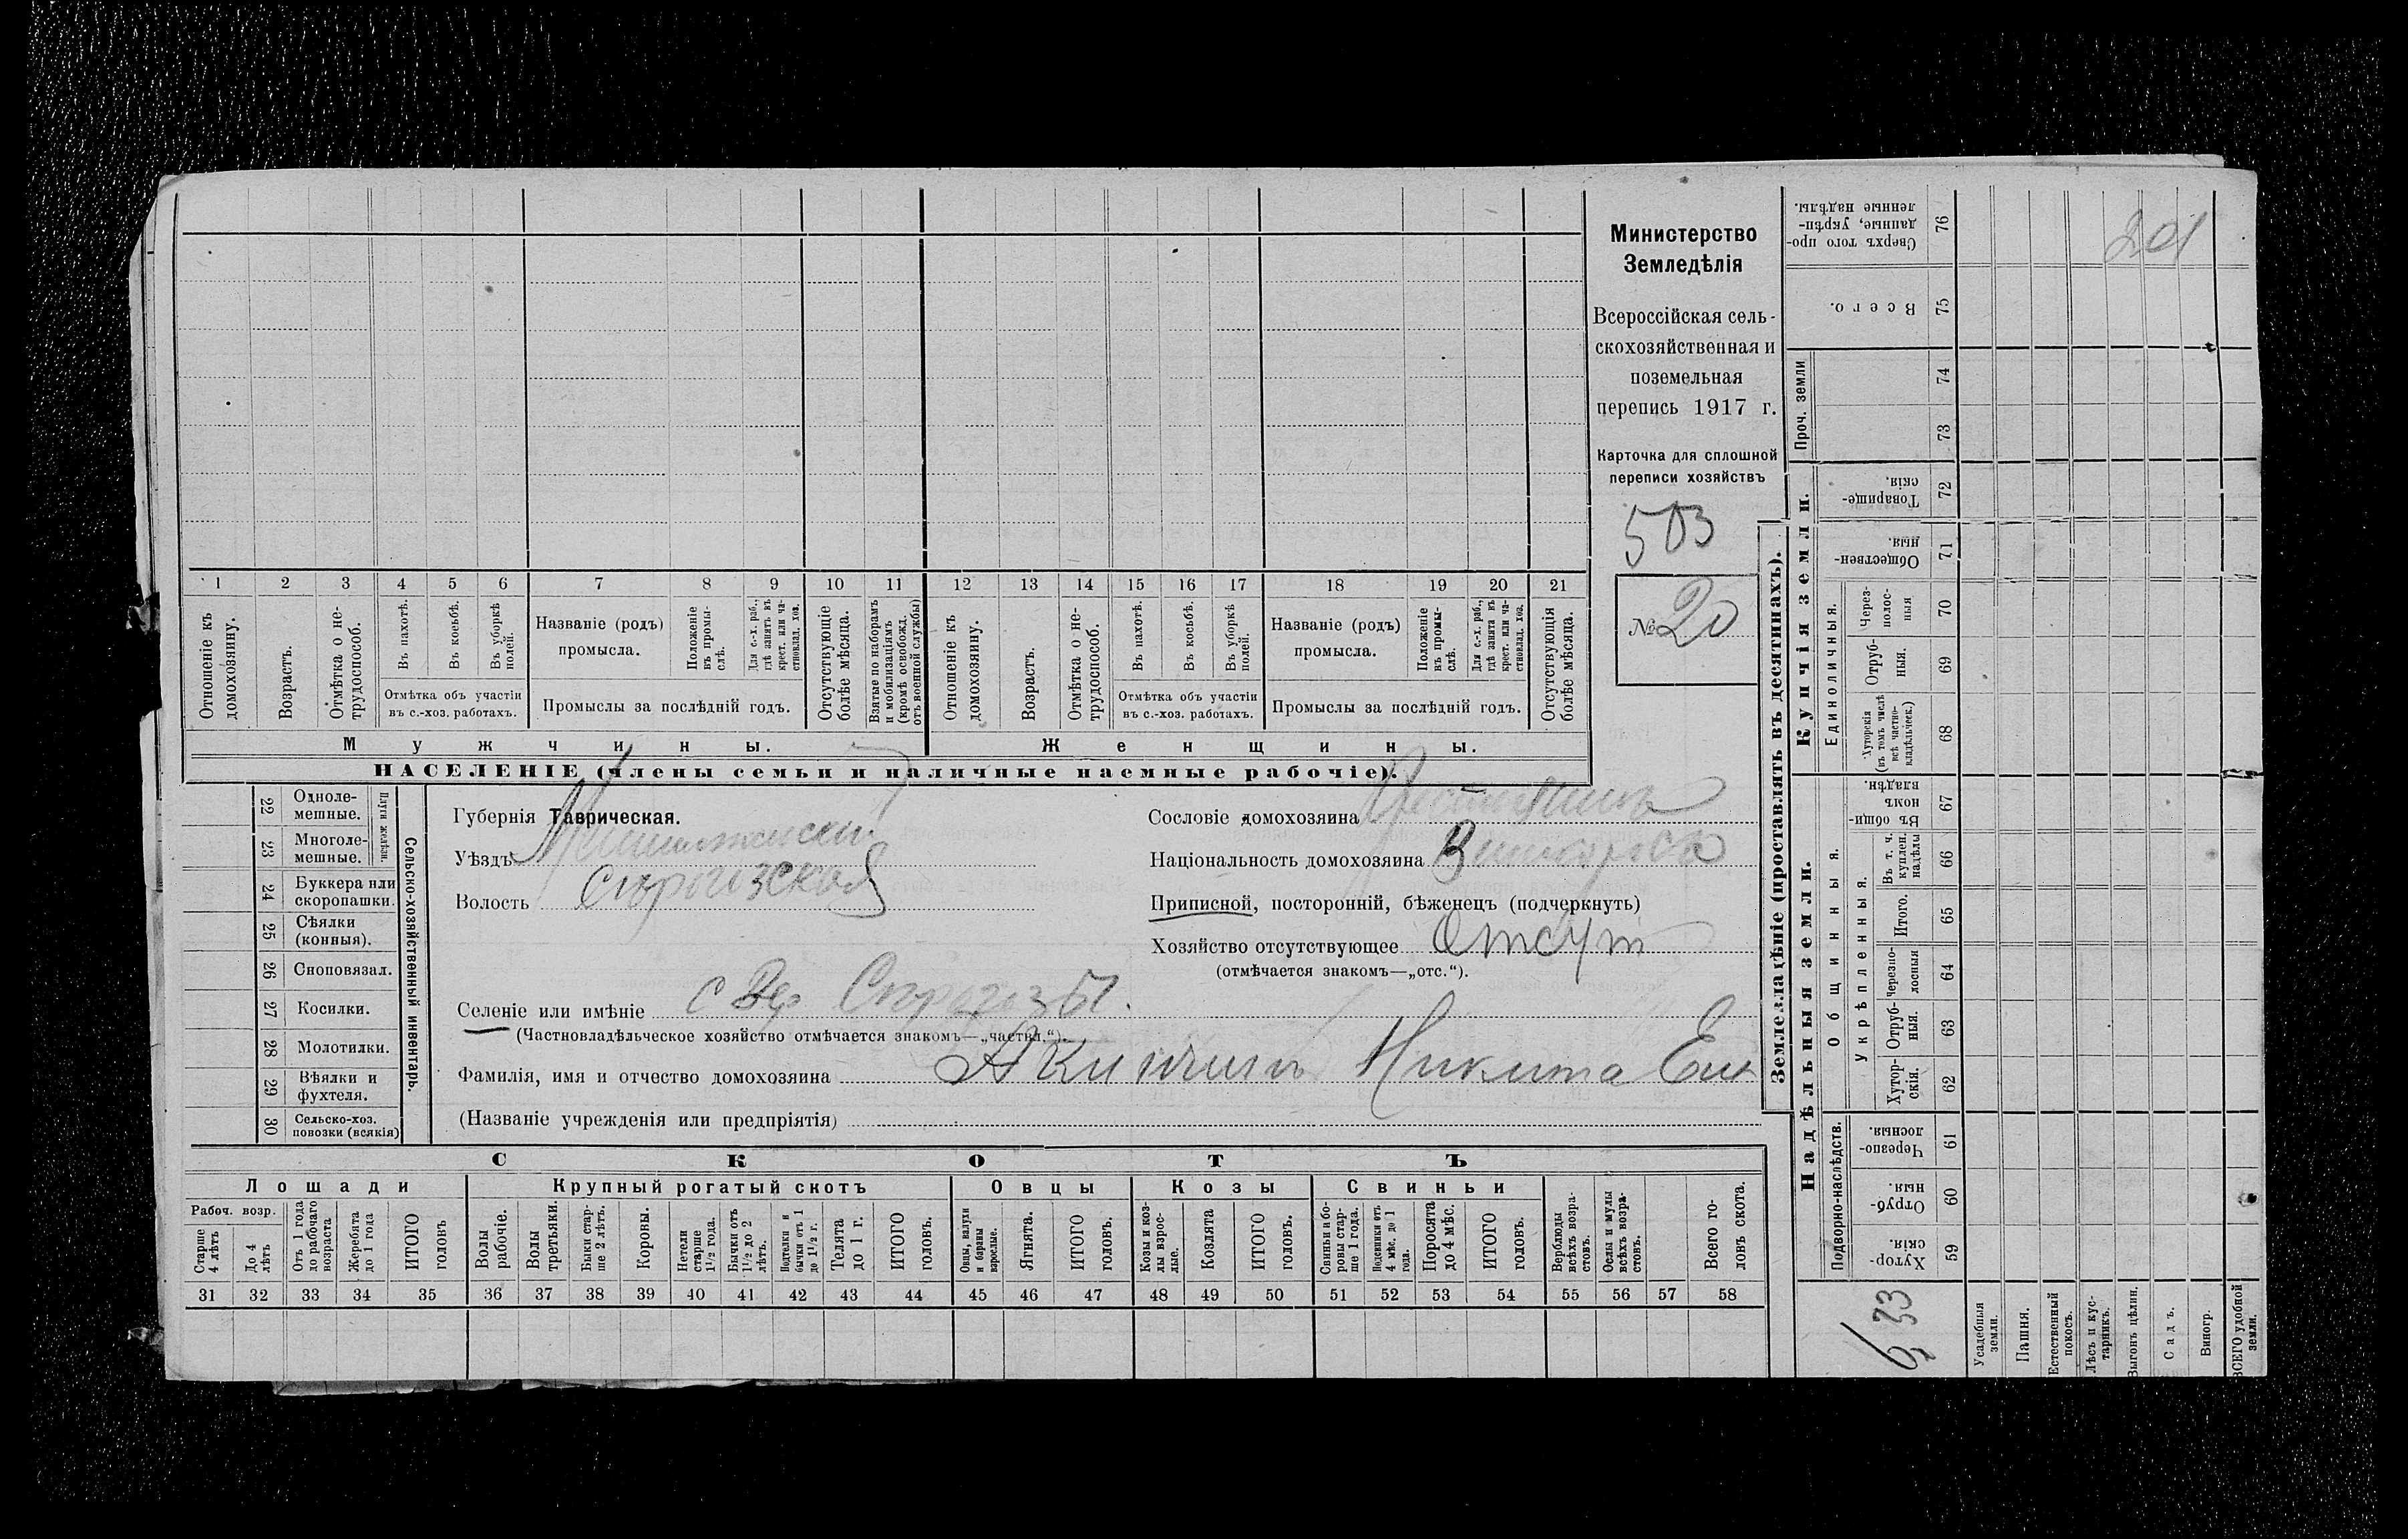 1 2 3 4 5 6 7 8 9 10 11 12 13 14 15 16 17 18 19 20 21
Отношеніе къ домохозяину.
Возрастъ.
Отмѣтка о не-
трудоспособ.
Въ пахотѣ.
Въ косьбѣ.
Въ уборкѣ
полей.
Отмѣтка объ участіи
въ с.-хоз. работахъ.
Названіе (родъ)
промысла.
Положеніе
въ промы-
слѣ.
Для с.-х. раб.,
гдѣ занятъ въ
крест. или ча-
стновлад. хоз.
Промыслы за послѣдній годъ.
Отсутствующіе
болѣе мѣсяца.
Взятые по наборамъ
и мобилизаціямъ
(кромѣ освобожд.
отъ военной службы)
Отношеніе къ
домохозяину.
Возрастъ.
Отмѣтка о не-
трудоспособ.
Въ пахотѣ.
Въ косьбѣ.
Въ уборкѣ
полей.
Отмѣтка объ участіи
въ с.-хоз. работахъ.
Названіе (родъ)
промысла.
Положеніе
въ промы-
слѣ.
Для с.-х. раб.,
гдѣ занята въ
крест. или ча-
стновлад. хоз.
Промыслы за послѣдній годъ.
Отсутствующія
болѣе мѣсяца.
Мужчины.
Женщины.
НАСЕЛЕНІЕ (члены семьи и наличные наемные рабочіе).
Министерство
Земледѣлія
Всероссійская сель-
скохозяйственная и
поземельная
перепись 1917 г.
Карточка для сплошной
переписи хозяйствъ
503
№ 20
Сельско-хозяйственный инвентарь.
Плуги желѣзн.
22 Одноле-
мешные.
23 Многоле-
мешные.
24 Буккера или
скоропашки.
25 Сѣялки
(конныя).
26 Сноповязал.
27 Косилки.
28 Молотилки.
29 Вѣялки и
фухтеля.
30 Сельско-хоз.
повозки (всякія)
Губернія Таврическая.
Уѣздъ
Волость
Селеніе или имѣніе
(Частновладѣльческое хозяйство отмѣчается знакомъ—„частвл.“).
Фамилія, имя и отчество домохозяина Никита
(Названіе учрежденія или предпріятія)
Сословіе домохозяина
Національность домохозяина
Приписной, посторонній, бѣженецъ (подчеркнуть)
Хозяйство отсутствующее Отсут
(отмѣчается знакомъ—„отс.“).
СКОТЪ
Лошади
Рабоч. возр.
Старше
4 лѣтъ
До 4
лѣтъ
Отъ 1 года
до рабочаго
возраста
Жеребята
до 1 года
ИТОГО
головъ
Крупный рогатый скотъ
Волы
рабочіе.
Волы
третьяки.
Быки стар-
ше 2 лѣтъ.
Коровы.
Нетели
старше
1½ года.
Бычки отъ
1½ до 2
лѣтъ.
Подтелки и
бычки отъ 1
до 1½ г.
Телята
до 1 г.
ИТОГО
головъ.
Овцы
Овцы, валухи
и бараны
взрослые.
Ягнята.
ИТОГО
головъ.
Козы
Козы и коз-
лы взрос-
лые.
Козлята
ИТОГО
головъ.
Свиньи
Свиньи и бо-
ровы стар-
ше 1 года.
Подсвинки отъ
4 мѣс. до 1
года.
Поросята
до 4 мѣс.
ИТОГО
головъ.
Верблюды
всѣхъ возра-
стовъ.
Ослы и мулы
всѣхъ возра-
стовъ.
Всего го-
ловъ скота.
31 32 33 34 35 36 37 38 39 40 41 42 43 44 45 46 47 48 49 50 51 52 53 54 55 56 57 58
Землевладѣніе (проставлять въ десятинахъ).
Надѣльныя земли.
Подворно-наслѣдств.
Хутор-
скія. 59
Отруб-
ныя. 60
Черезпо-
лосныя. 61
Общинныя.
Укрѣпленныя.
Хутор-
скія. 62
Отруб-
ныя. 63
Черезпо-
лосныя 64
Итого. 65
Въ т. ч.
куплен.
надѣлы 66
Въ общи-
номъ
владѣн. 67
Купчія земли.
Единоличныя.
Хуторскія
(въ томъ числѣ
всѣ частно-
владѣльческ.) 68
Отруб-
ныя. 69
Через-
полос-
ныя 70
Обществен-
ныя. 71
Товарище-
скія. 72
Проч. земли
73 74
Всего. 75
Сверхъ того про-
данные, укрѣп-
ленные надѣлы. 76
201
633
Усадебныя
земли.
Пашня.
Естественный
покосъ.
Лѣсъ и кус-
тарникъ.
Выгонъ цѣлин.
Садъ.
Виногр.
ВСЕГО удобной
земли.